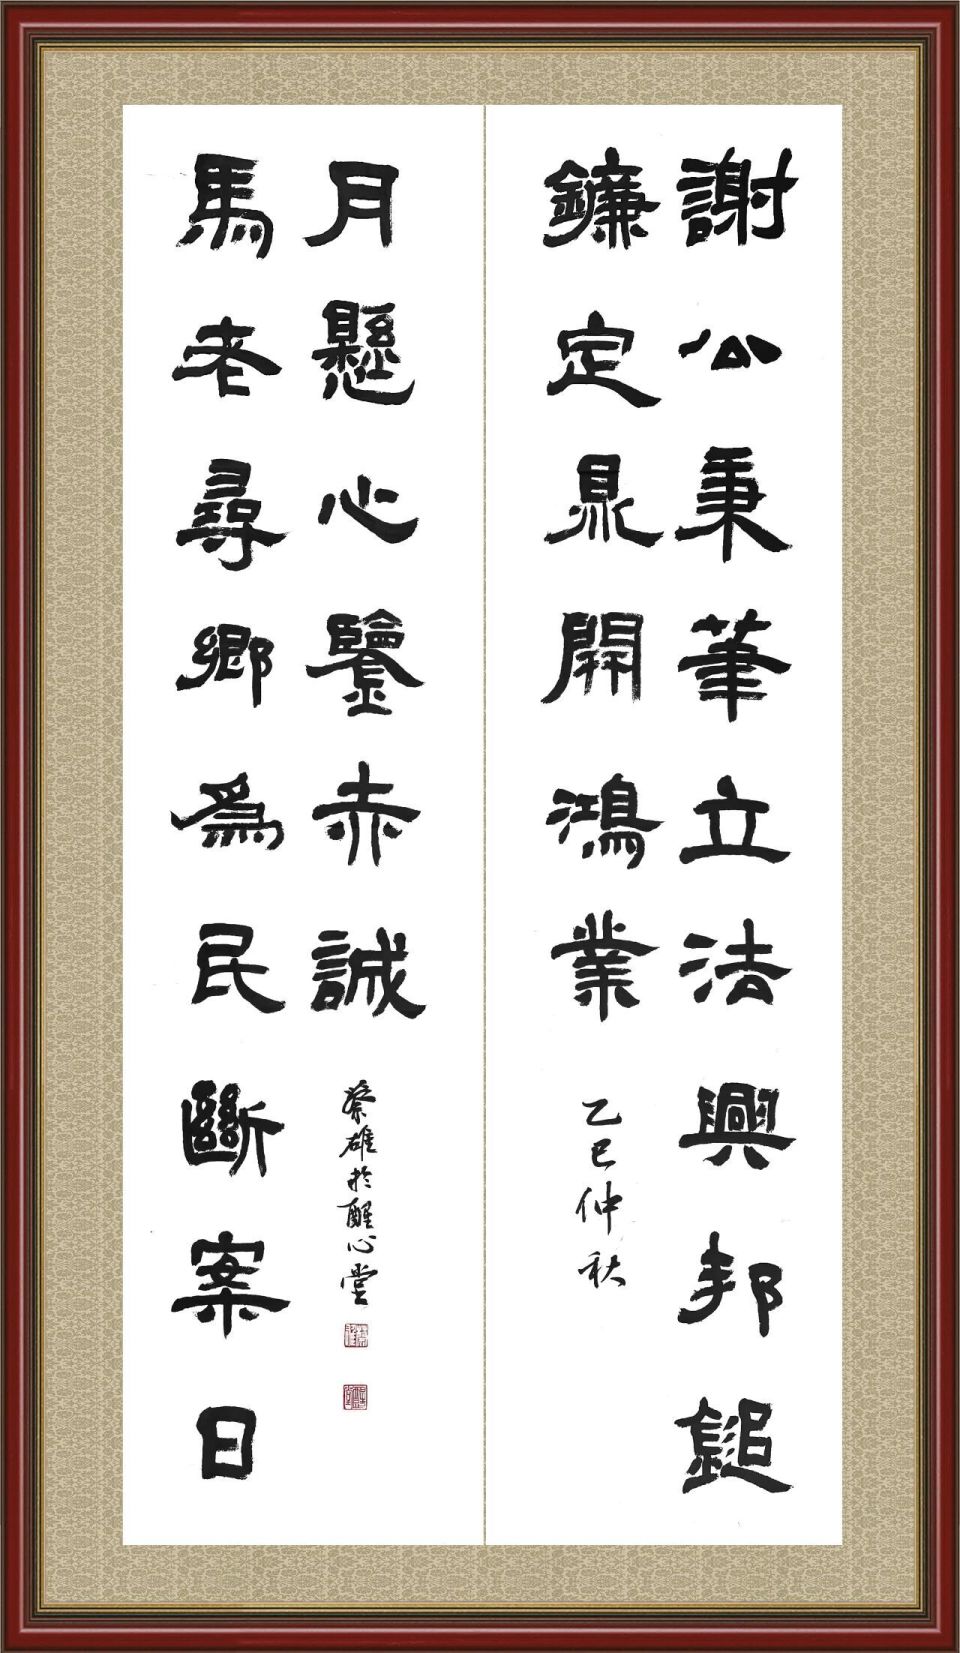 謝公秉筆立法興邦鎚
鐮定鼎開鴻業
乙巳仲秋
馬老尋鄉為民斷案日
月懸心鑒赤誠
蔡雄於醒心堂